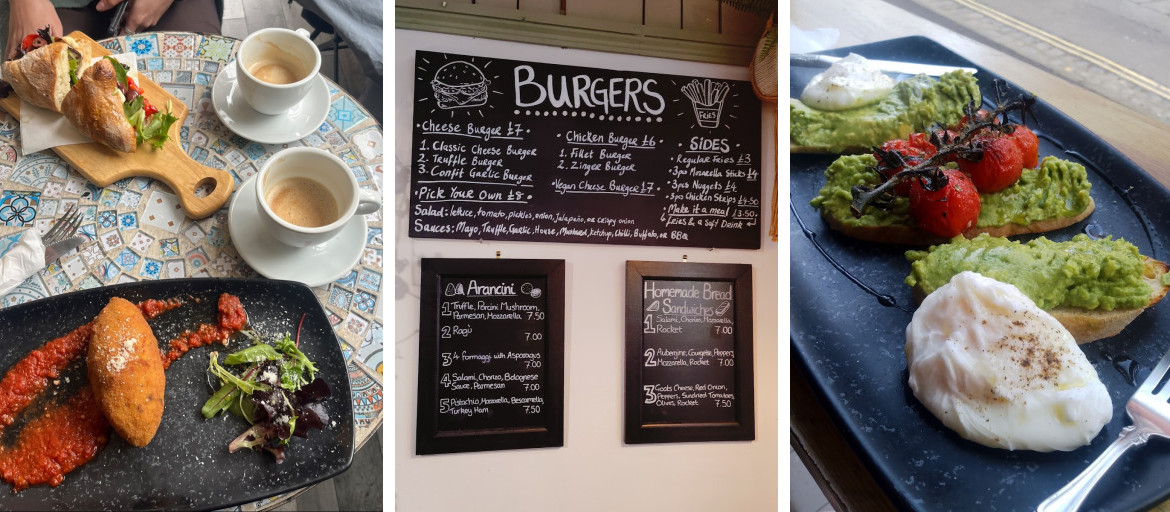 BURGERS
FRIES
• Cheese Burger £7 •
1. Classic Cheese Burger
2. Truffle Burger
3. Confit Garlic Burger
• Pick Your Own £8 •
Salad: lettuce, tomato, pickles, onion, Jalapaño, or crispy onion
Sauces: Mayo, Truffle, Garlic, House, Mustard, Ketchup, Chilli, Buffalo, or BBQ
• Chicken Burger £6 •
1. Fillet Burger
2. Zinger Burger
• Vegan Cheese Burger £7 •
• SIDES •
• Regular Fries £3
• 3pcs Mozarella Sticks £4
• 3pcs Nuggets £4
• 3pcs Chicken Strips £4.50
• Make it a meal £3.50 •
Fries & a Soft Drink
Arancini
1 Truffle, Porcini Mushroom,
Parmesan, Mozzarella 7.50
2 Ragù
7.00
3 4 formaggi with Asparagus
7.00
4 Salami, Chorizo, Bolognese
Sauce, Parmesan 7.00
5 Pistachio, Mozarella, Bescamella,
Turkey Ham 7.50
Homemade Bread
Sandwiches
1 Salami, Chorizo, Mozzarella,
Rocket 7.00
2 Aubergine, Courgette, Peppers,
Mozzarella, Rocket 7.00
3 Goats Cheese, Red Onion,
Peppers, Sundried Tomatoes,
Olives, Rocket 7.50